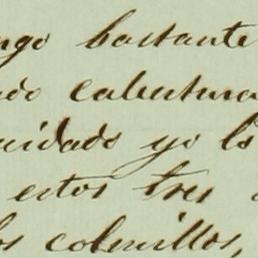 ngo bastante
ndo calentura
uidado yo lo
estos tres
los colmillos,